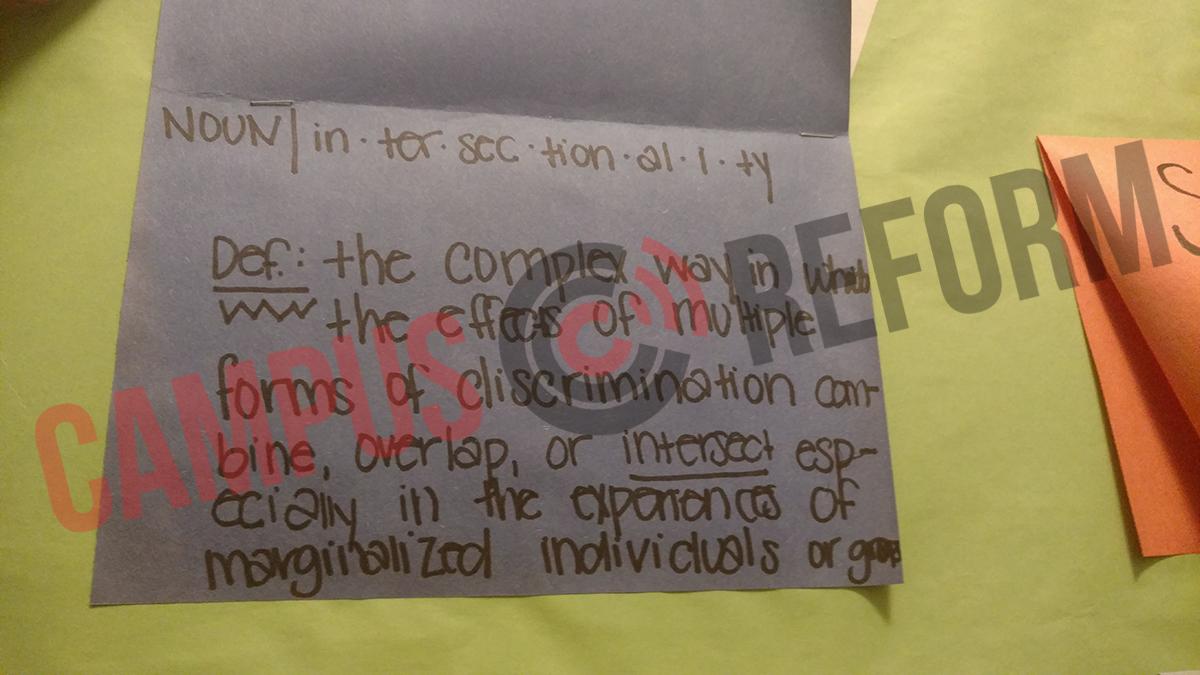 NOUN| in·ter·sec·tion·al·i·ty
Def.: the complex way in which
the effects of multiple
forms of discrimination com-
bine, overlap, or intersect esp-
ecially in the experiences of
marginalized individuals or groups
CAMPUS REFORM
S